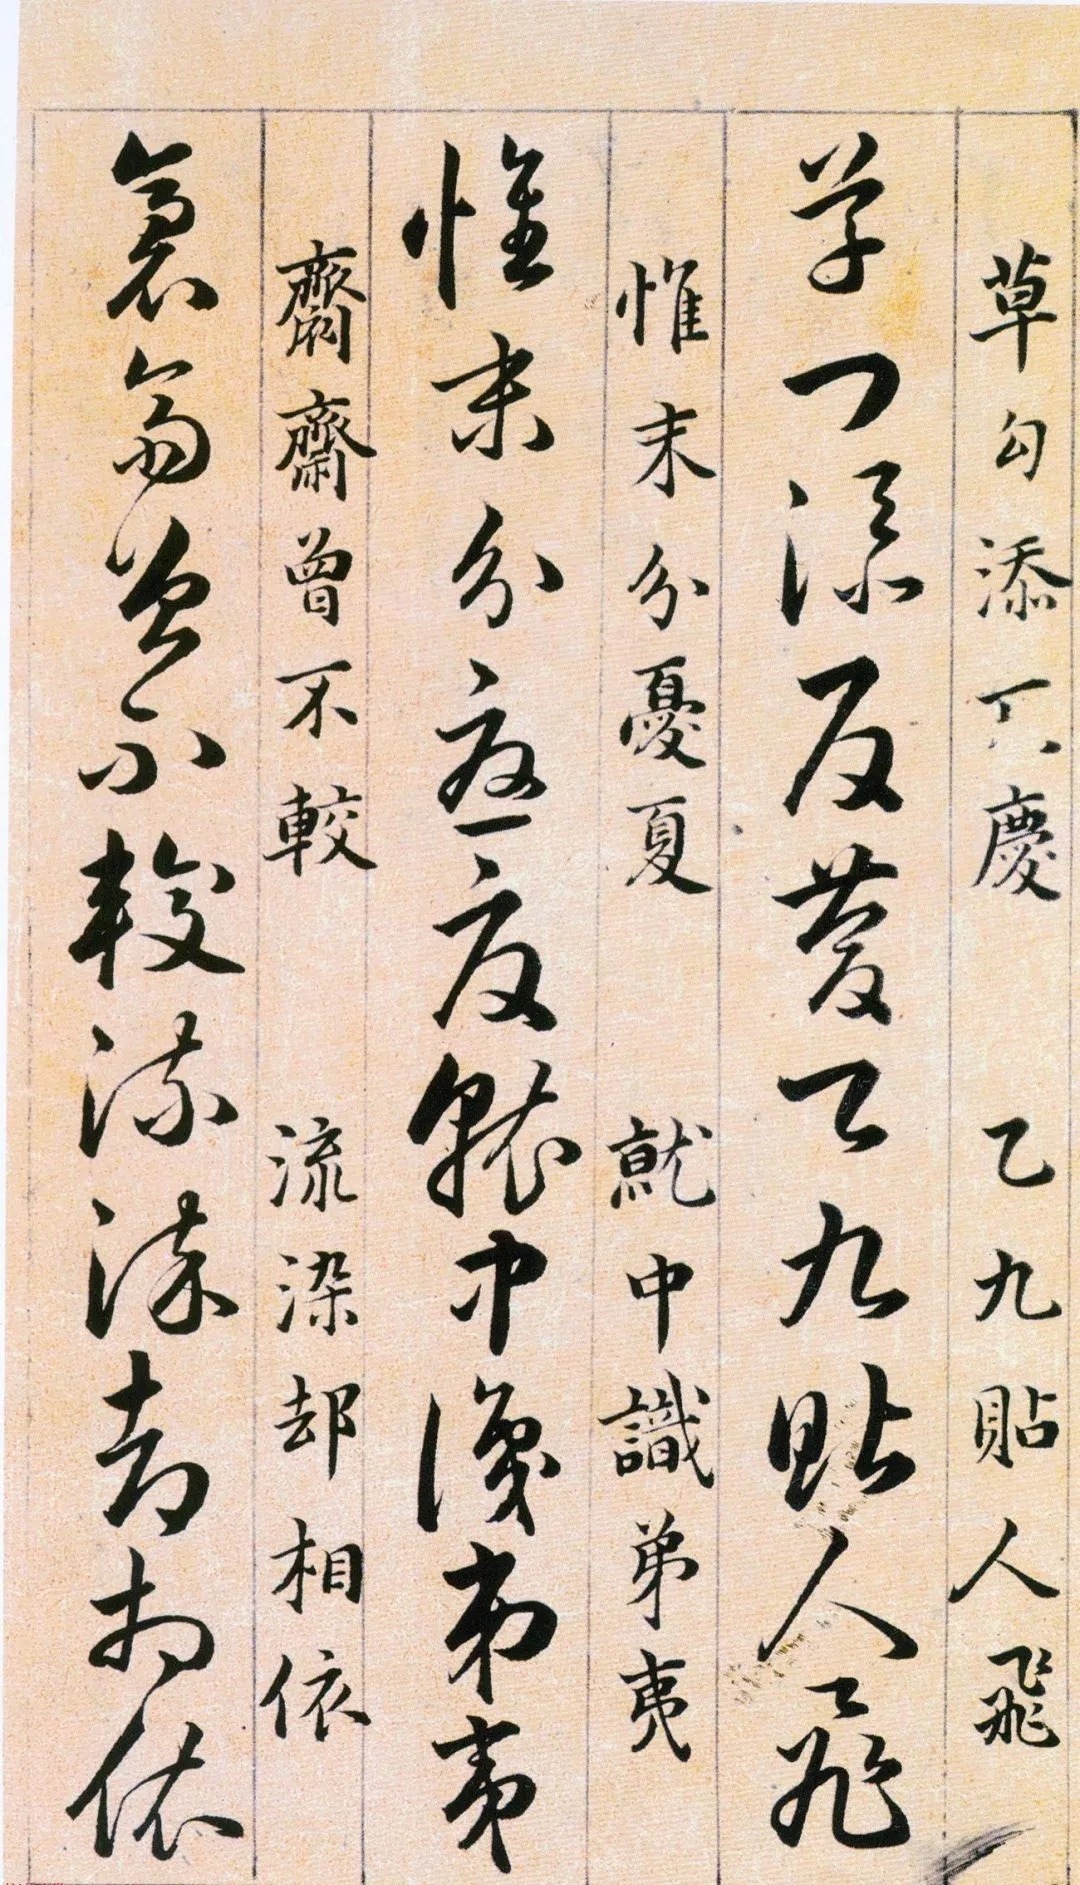 草勾添慶　乙九貼人飛
草勾添反慶乙九貼人飛
惟末分憂夏　就中識弟夷
惟末分憂夏就中識弟夷
齋齊曾不較　流染却相依
齋齊曾不較流染却相依